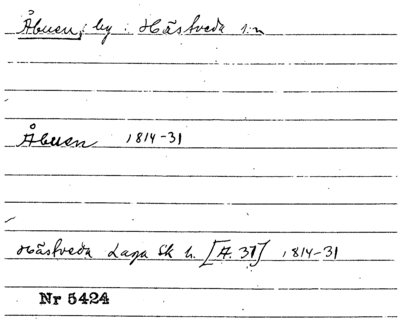 Åbuen, by i Hästveda s:n
Åbuen 1814-31
Hästveda Laga Sk h. [A. 31] 1814-31
Nr 5424